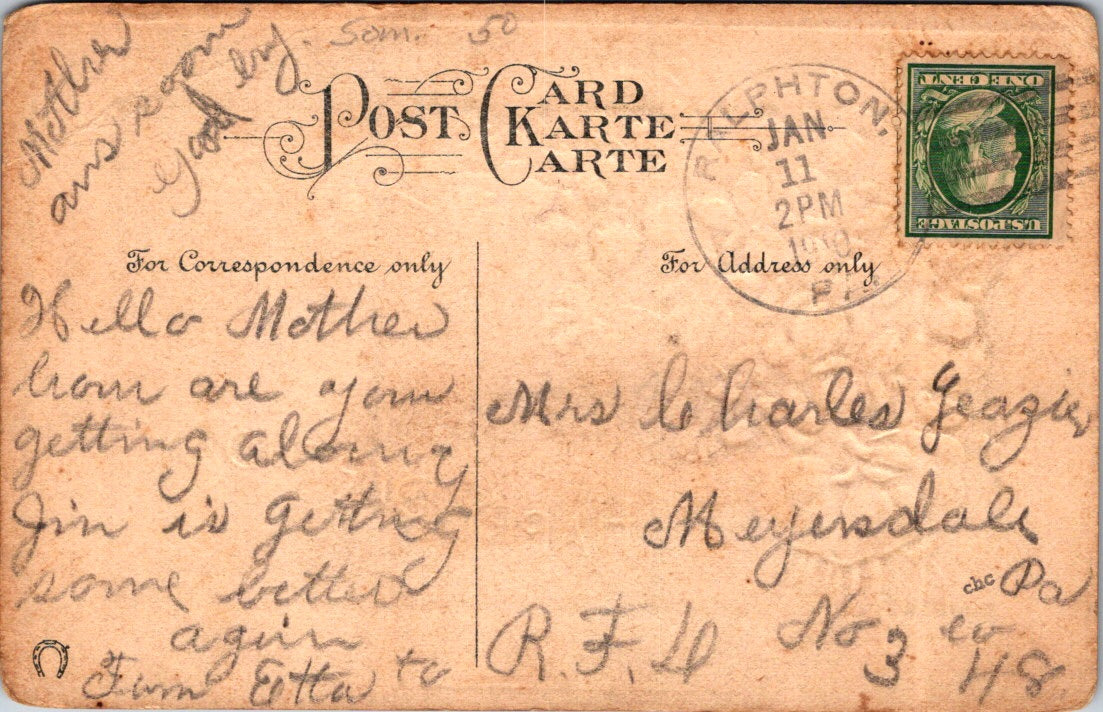 Mother
ans soon
good by.
Som. 50
POST CARD
KARTE
CARTE
RALPHTON,
JAN
11
2PM
1910
PA.
ONE CENT
U.S. POSTAGE
For Correspondence only
For Address only
Hello Mother
how are you
getting along
Jim is getting
some better
agin
From Etta to
Mrs Charles Yeazier
Meyersdale
cbc
Pa
R.F.D No 3
48